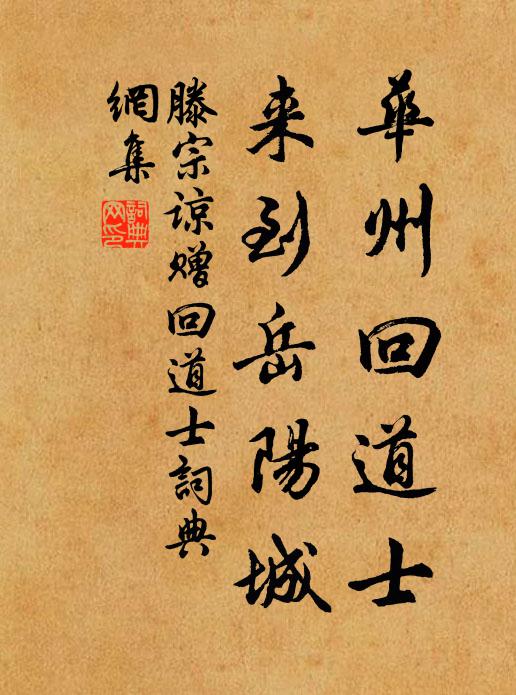 華州回道士
来到岳陽城
滕宗諒贈回道士詞典
網集
詞典
网印